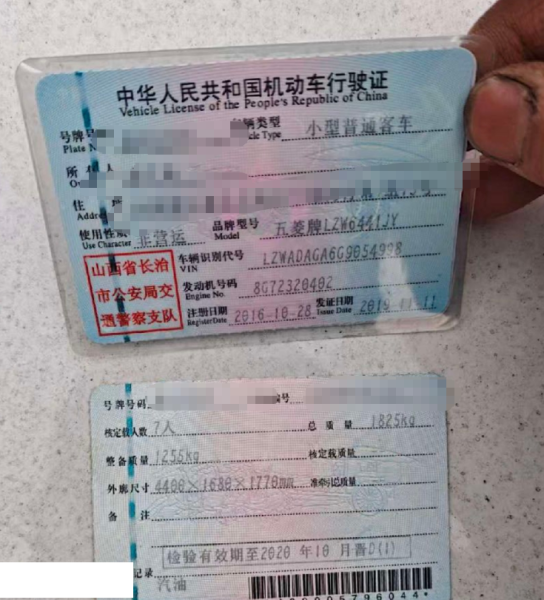 中华人民共和国机动车行驶证
Vehicle License of the People's Republic of China
号牌号 车辆类型 小型普通客车
Plate Type
所
住
Address
使用性质 非营运 品牌型号 五菱牌LZW6441JY
Use Character Model
山西省长治
市公安局交
通警察支队
车辆识别代号 LZWADAGA6G9054998
VIN
发动机号码 8G72320402
Engine No.
注册日期 2016-10-28 发证日期 2019-11-11
Register Date Issue Date
号牌号码 编号
核定载人数 7人 总质量 1825kg
整备质量 1255kg 核定载质量
外廓尺寸 4400×1680×1770mm 准牵引总质量
备注
检验有效期至2020年10月晋D(1)
记录
汽油